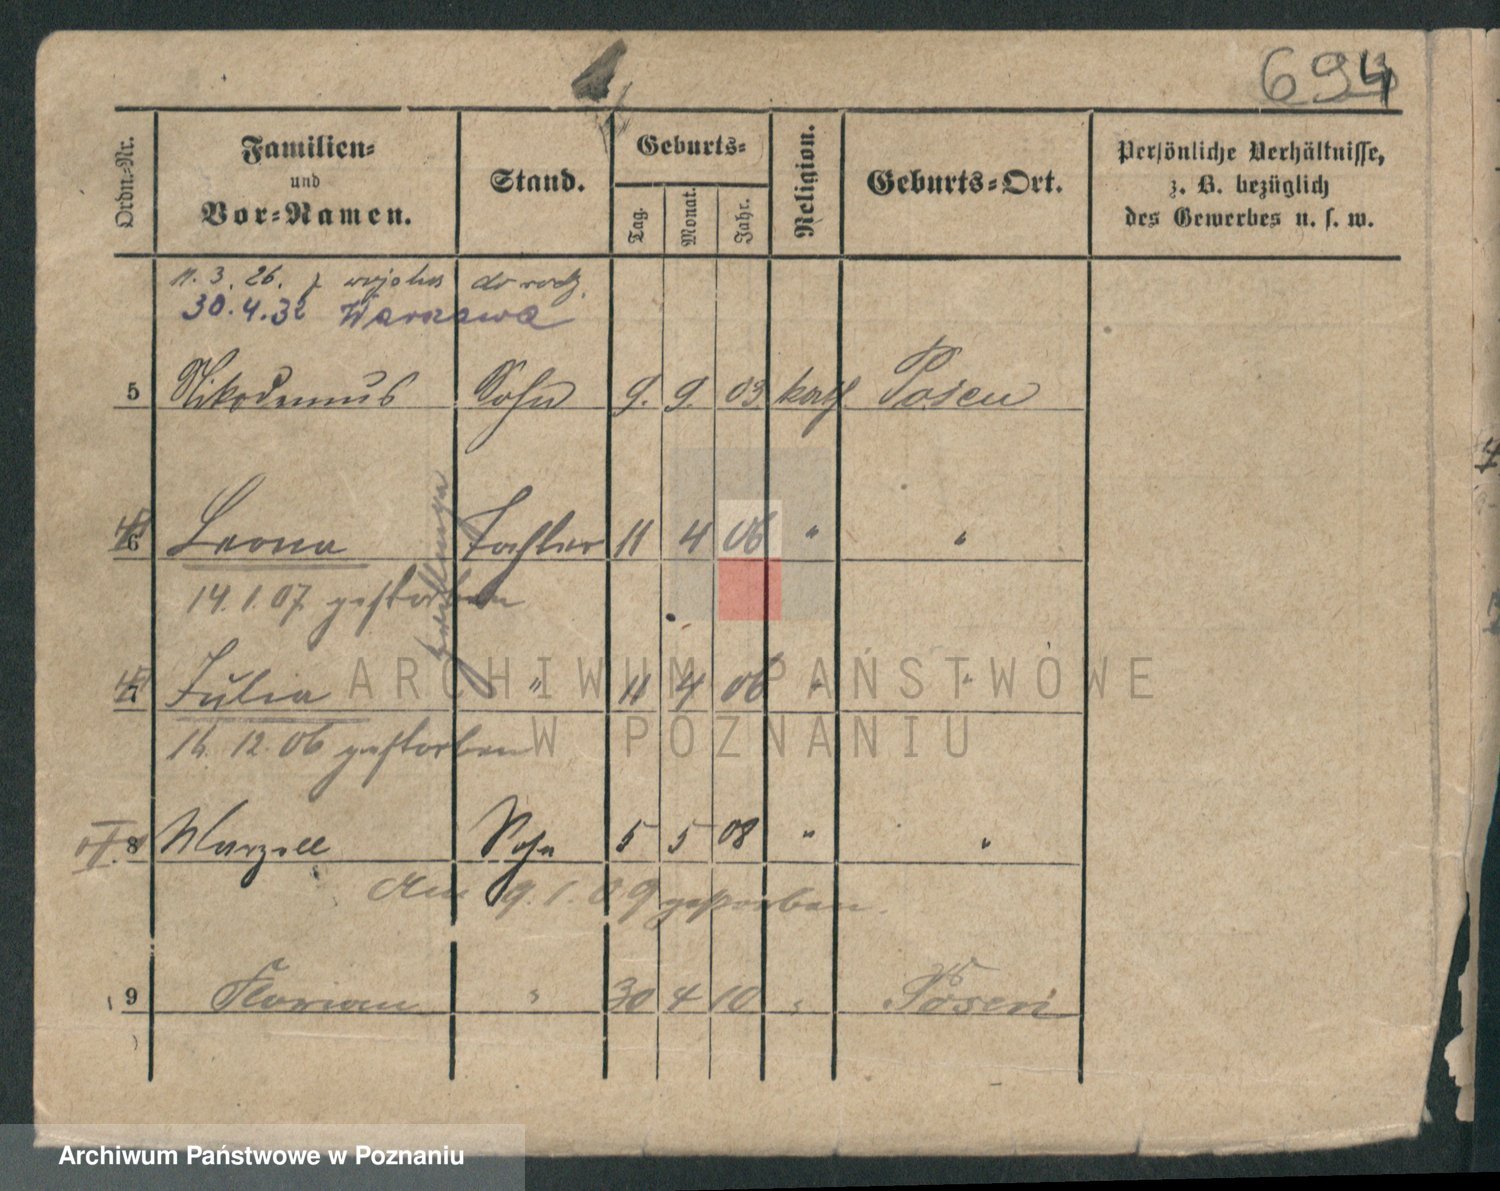 694
Ordn.-Nr.
Familien-
und
Vor-Namen.
Stand.
Geburts-
Tag.
Monat.
Jahr.
Religion.
Geburts-Ort.
Persönliche Verhältnisse,
z. B. bezüglich
des Gewerbes u. s. w.
11. 3. 26. z wojska do rodz.
30.4.32 Warszawa
5 Nikodemus Sohn 9. 9. 03 kath Posen
6 Leona Tochter 11 4 06 " "
14.1.07 gestorben
7 Julia " 11 4 06 " "
16.12.06 gestorben
8 Marzell Sohn 5 5 08 " "
Am 9.1.09 gestorben.
9 Florian " 30 4 10 " Posen
ARCHIWUM PAŃSTWOWE
W POZNANIU
Archiwum Państwowe w Poznaniu